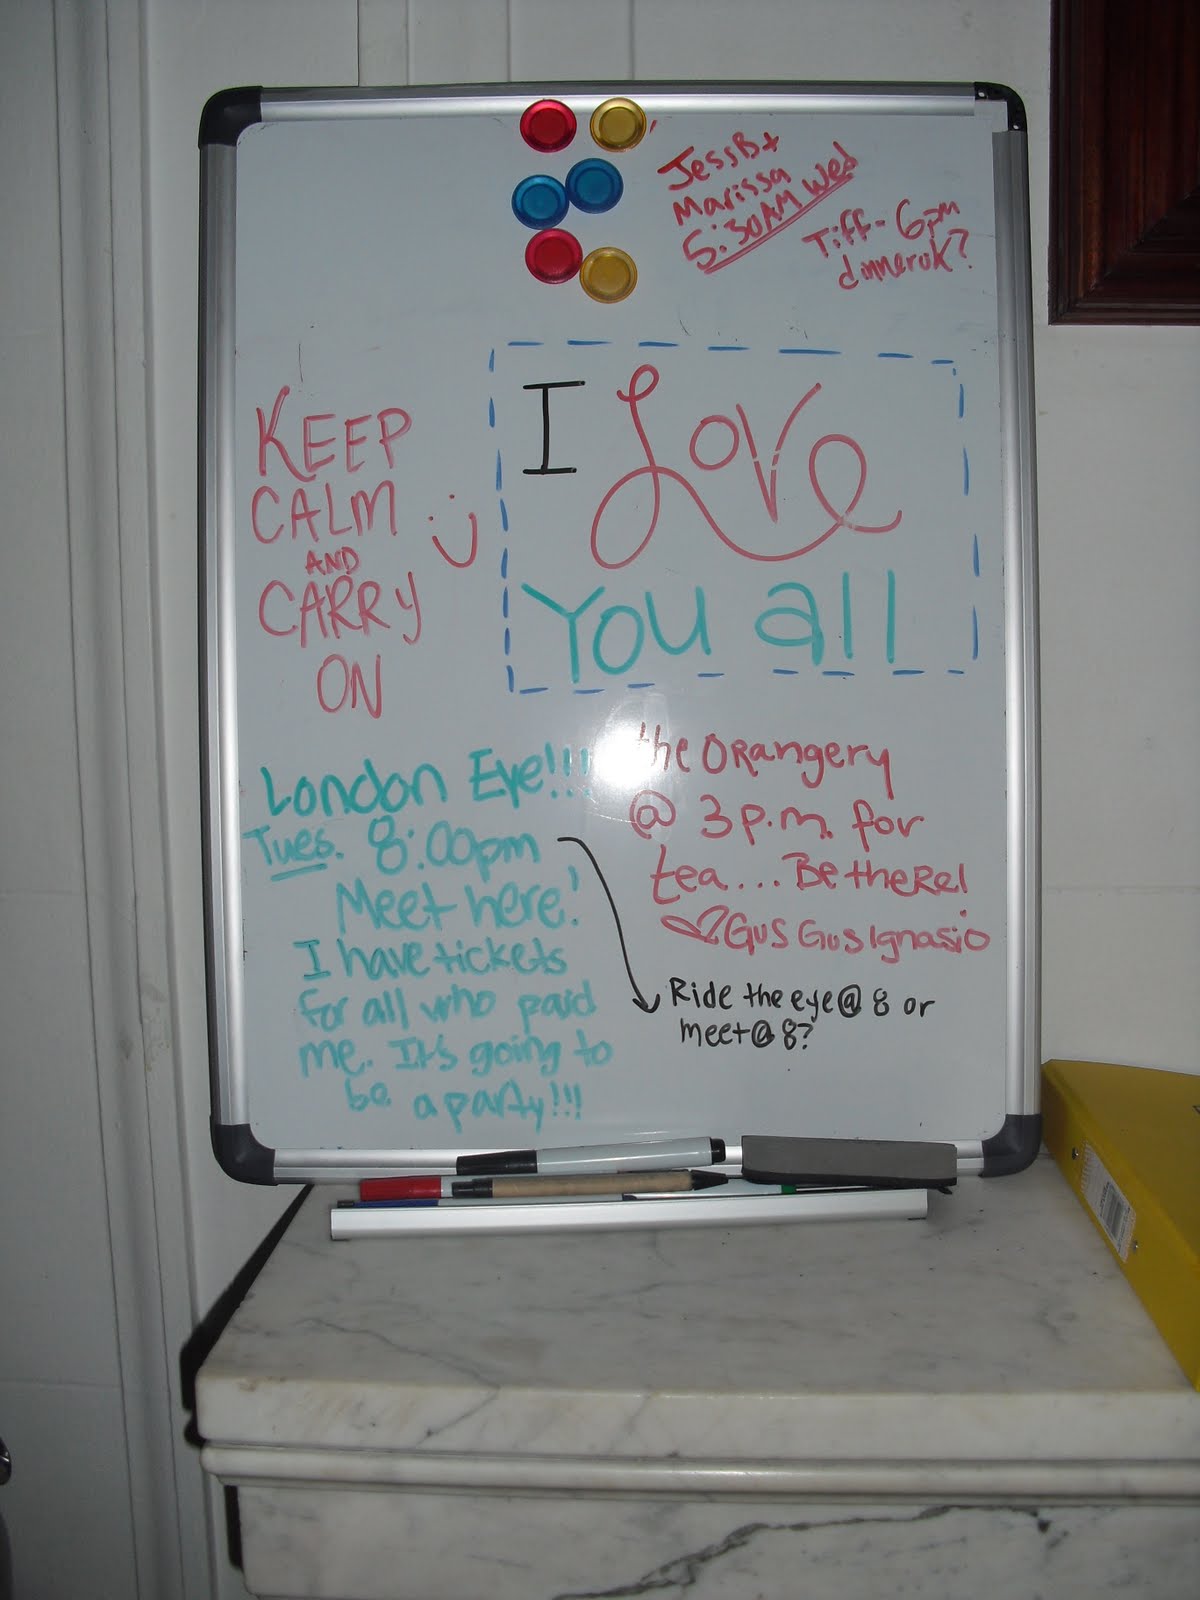 JessB+
Marissa
5:30AM Wed
Tiff - 6pm
dinner ok?
KEEP
CALM
AND
CARRY
ON
:)
I Love
You all
London Eye!!!
Tues. 8:00pm
Meet here!
I have tickets
for all who paid
me. It's going to
be a party!!!
the ORangery
@ 3 p.m. for
tea.... Be theRe!
♡ Gus Gus Ignasio
Ride the eye @ 8 or
meet @ 8?